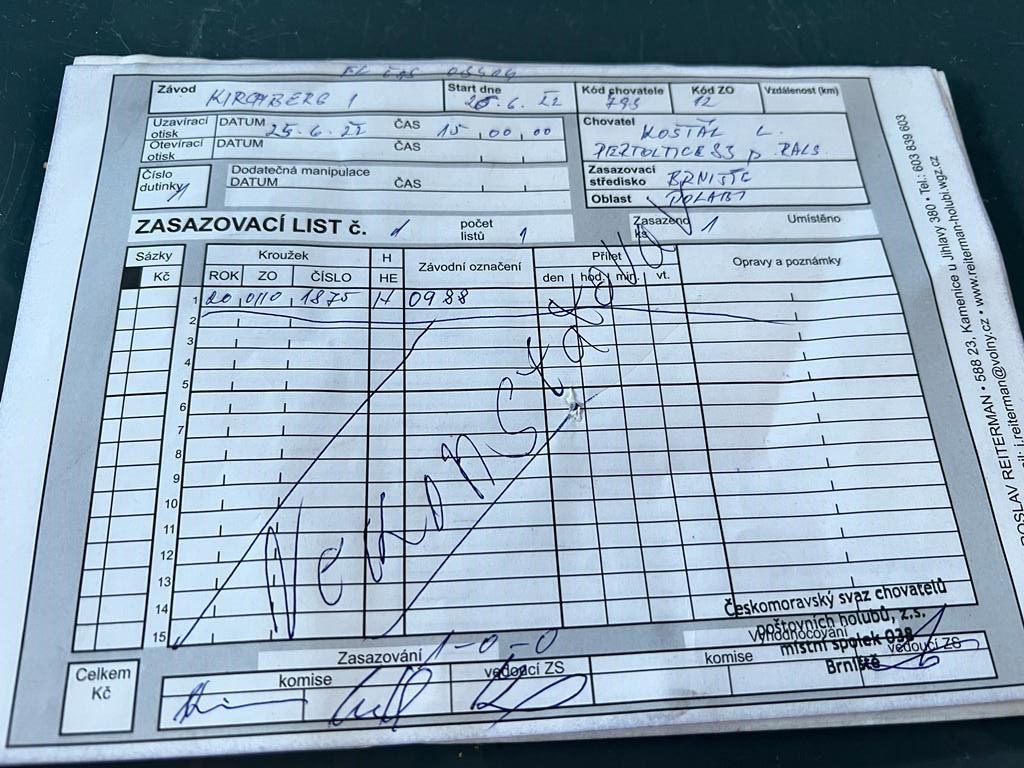 Závod KIRCHBERG 1 Start dne 26.6.22 Kód chovatele 793 Kód ZO 12 Vzdálenost (km)
Uzavírací otisk DATUM 25.6.22 ČAS 15 00 00
Otevírací otisk DATUM ČAS
Chovatel KOŠŤÁL L.
PERTOLTICE 83 p. RALS.
Číslo dutinky 1
Dodatečná manipulace
DATUM ČAS
Zasazovací středisko BRNIŠTĚ
Oblast POLABÍ
ZASAZOVACÍ LIST č. 1 počet listů 1 Zasazeno ks 1 Umístěno
Sázky Kroužek H Závodní označení Přílet Opravy a poznámky
Kč ROK ZO ČÍSLO HE den hod. min. vt.
1 20 0110 1875 H 0988
2
3
4
5
6
7
8
9
10
11
12
13
14
15
Nekonstatován
Českomoravský svaz chovatelů
poštovních holubů, z.s.
místní spolek 038
Brniště
Celkem Kč
Zasazování 1-0-0 Vyhodnocování
komise vedoucí ZS komise vedoucí ZS
ROSLAV REITERMAN • 588 23, Kamenice u Jihlavy 380 • Tel.: 603 839 603
il: j.reiterman@volny.cz • www.reiterman-holubi.wgz.cz